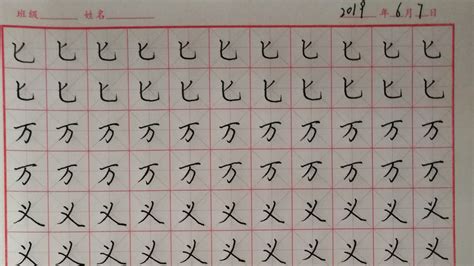 班级 姓名 2019 年 6 月 7 日
匕 匕 匕 匕 匕 匕 匕 匕 匕 匕 匕
匕 匕 匕 匕 匕 匕 匕 匕 匕 匕 匕
万 万 万 万 万 万 万 万 万 万 万
万 万 万 万 万 万 万 万 万 万 万
义 义 义 义 义 义 义 义 义 义 义
义 义 义 义 义 义 义 义 义 义 义